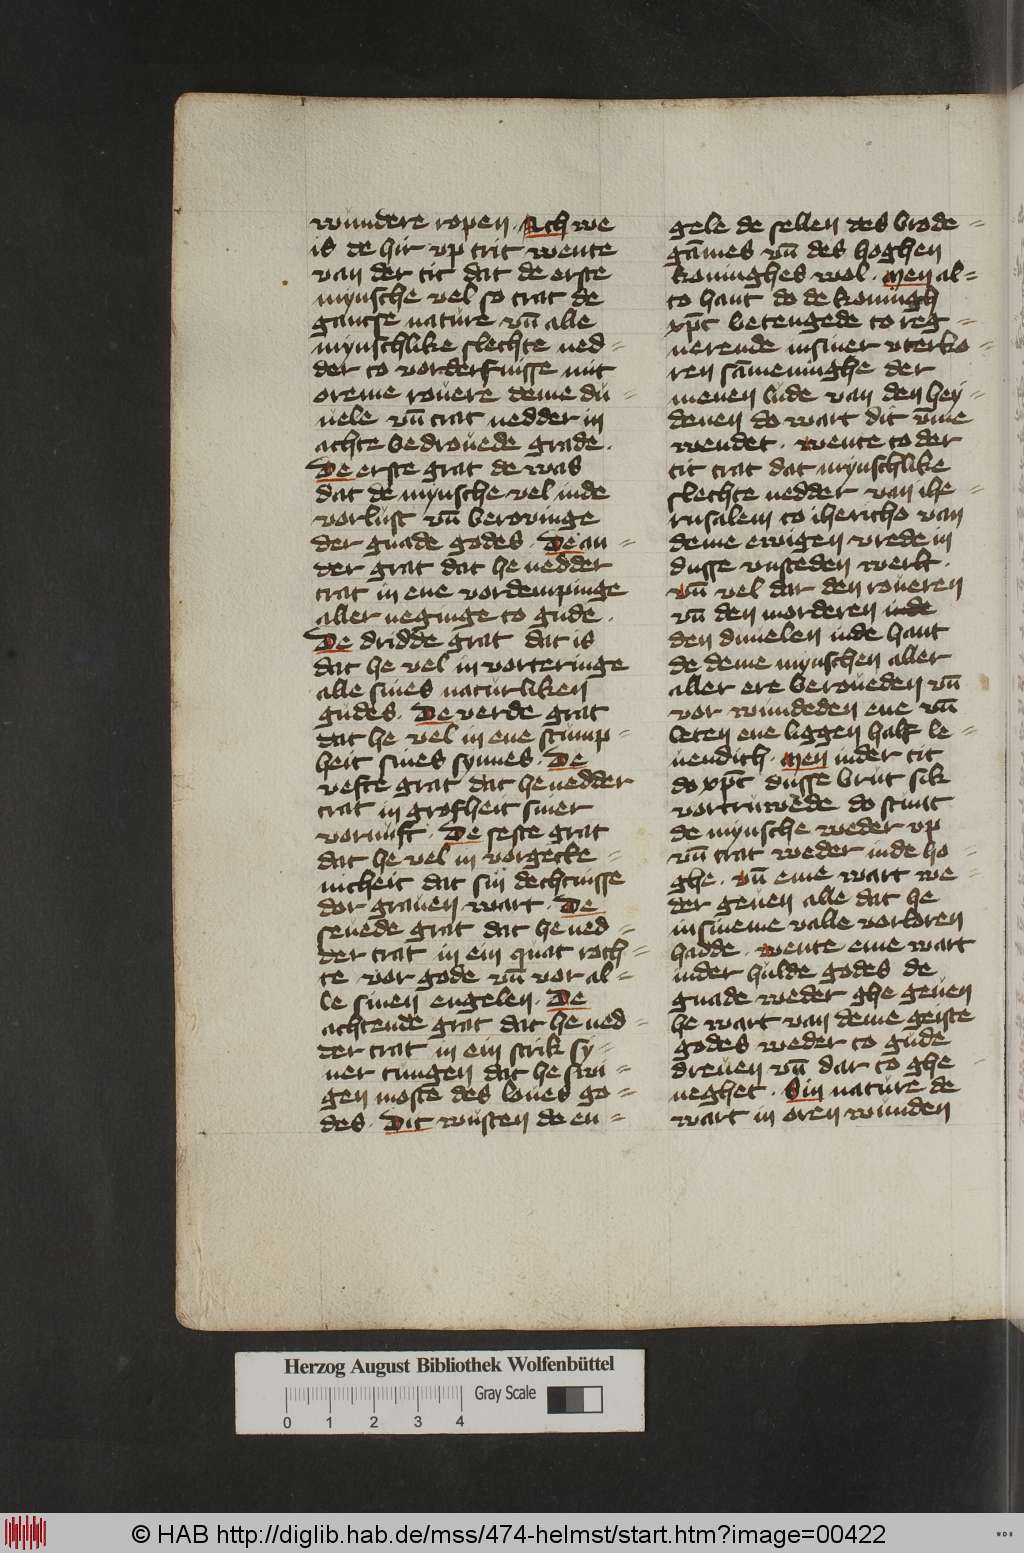 wundere ropen. Ach we
is de hir vp trit wente
van der tit dat de erste
mynsche vel so trat de
gantse nature vn̄ alle
mynschlike slechte ned=
der to vorderfnisse mit
oreme rovere deme du=
uele vn̄ trat nedder in
achte bedrouede grade.
De erste grat de was
dat de mynsche vel inde
vorlust vn̄ berovinge
der gnade godes. De an=
der grat dat he nedder
trat in ene vordempinge
aller neginge to gude.
De dridde grat dat is
dat he vel in vorteringe
alle sines naturliken
gudes. De verde grat
dat he vel in ene stump=
heit sines synnes. De
vefte grat dat he nedder
trat in grofheit siner
vornuft. De seste grat
dat he vel in vorgecke=
nicheit dat sin dechtnisse
dor grauen wart. De
seuede grat dat he ned=
der trat in ein quat roch=
te vor gode vn̄ vor al=
le sinen engelen. De
achtende grat dat he ned=
der trat in ein strik sy=
ner tungen dat he swi=
gen moste des loues go=
des. Dit wusten de en=
gele de sellen des brode=
gāmes vn̄ des hoghen
koninghes wol. Men al=
to hant do de koningh
xp̄c betengede to reg=
nerende in siner vterko=
ren sāmeninghe der
menen lude van den hey=
denen do wart dit v̄me
wendet. wente to der
tit trat dat mynschlike
slechte nedder van ihe=
rusalem to ihericho van
deme ewigen vrede in
dusse vnsteden werlt.
vn̄ vel dar den roueren
vn̄ den morderen
den duuelen inde hant
de deme mynschen aller
aller ere beroueden vn̄
vor wundeden ene vn̄
leten ene liggen half le=
uendich. Men inder tit
do xp̄c dusse brut sik
vortruwede do stunt
de mynsche weder vp
vn̄ trat weder inde ho=
ghe. vn̄ eme wart we=
der geuen alle dat he
in sineme valle vorloren
hadde. wente eme wart
inder hulde godes de
gnade weder ghe geuen
he wart van deme geiste
godes weder to gude
dreuen vn̄ dar to ghe=
neghet. Sin nature de
wart in oren wunden
Herzog August Bibliothek Wolfenbüttel
Gray Scale
0 1 2 3 4
© HAB http://diglib.hab.de/mss/474-helmst/start.htm?image=00422